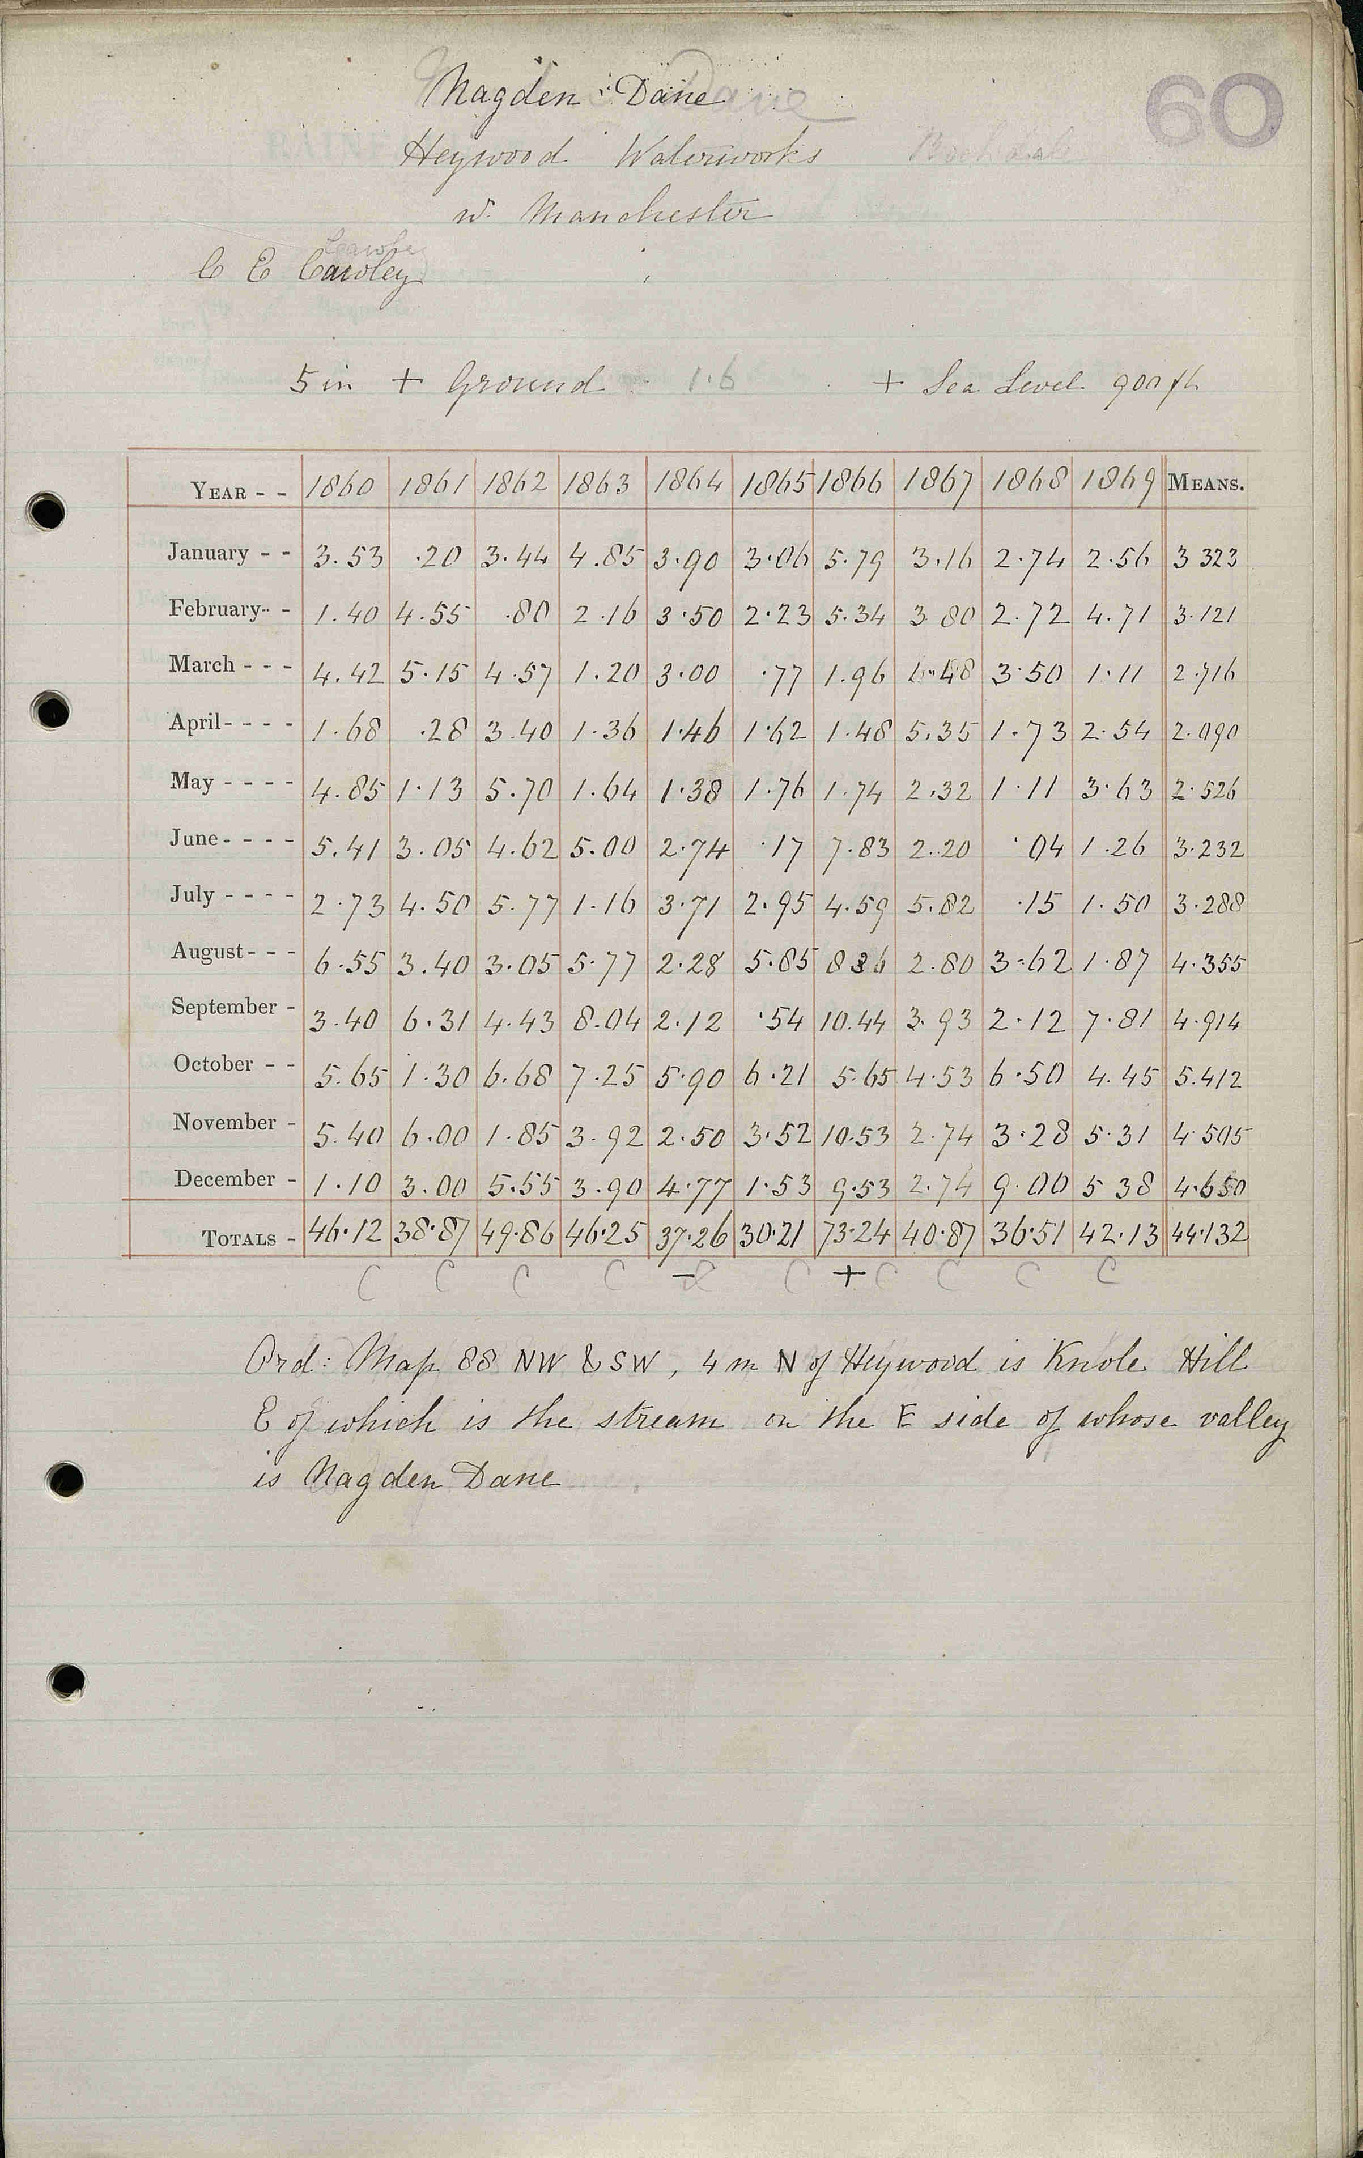 60
Nagden Dane
Heywood Waterworks Rochdale
nr. Manchester
C E Cawley
5 in + Ground 1.6 + Sea Level 900 ft
YEAR - - 1860 1861 1862 1863 1864 1865 1866 1867 1868 1869 MEANS.
January - - 3.53 .20 3.44 4.85 3.90 3.06 5.79 3.16 2.74 2.56 3 323
February - - 1.40 4.55 .80 2.16 3.50 2.23 5.34 3 80 2.72 4.71 3.121
March - - - 4.42 5.15 4.57 1.20 3.00 .77 1.96 1.48 3.50 1.11 2.716
April - - - - 1.68 .28 3.40 1.36 1.46 1.62 1.48 5.35 1.73 2.54 2.090
May - - - - 4.85 1.13 5.70 1.64 1.38 1.76 1.74 2.32 1.11 3.63 2.526
June - - - - 5.41 3.05 4.62 5.00 2.74 .17 7.83 2.20 .04 1.26 3.232
July - - - - 2.73 4.50 5.77 1.16 3.71 2.95 4.59 5.82 .15 1.50 3.288
August - - - 6.55 3.40 3.05 5.77 2.28 5.85 8 36 2.80 3.62 1.87 4.355
September - 3.40 6.31 4.43 8.04 2.12 .54 10.44 3.93 2.12 7.81 4.914
October - - 5.65 1.30 6.68 7.25 5.90 6.21 5.65 4.53 6.50 4.45 5.412
November - 5.40 6.00 1.85 3.92 2.50 3.52 10.53 2.74 3.28 5.31 4.505
December - 1.10 3.00 5.55 3.90 4.77 1.53 9.53 2.74 9.00 5 38 4.650
TOTALS - 46.12 38.87 49.86 46.25 37.26 30.21 73.24 40.87 36.51 42.13 44.132
C C C C C + C C C C
Ord: Map 88 NW & SW, 4 m N of Heywood is Knole Hill
E of which is the stream on the E side of whose valley
is Nagden Dane